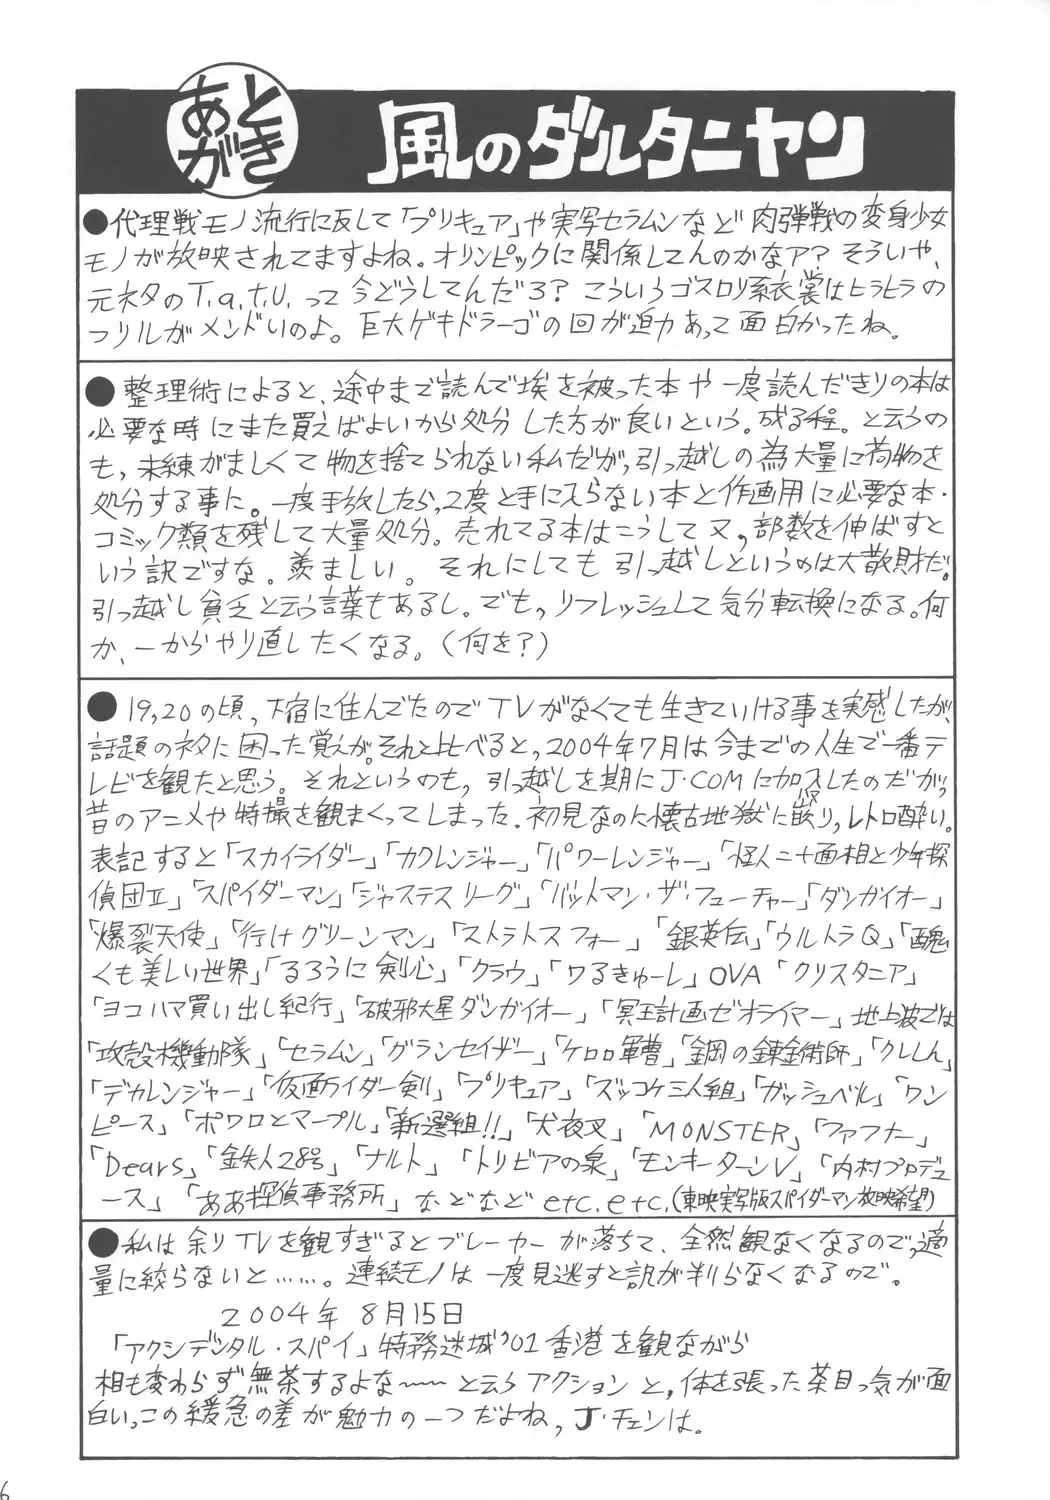 あとがき
風のダルタニヤン
●代理戦モノ流行に反して「プリキュア」や実写セラムンなど肉弾戦の変身少女
モノが放映されてますよね。オリンピックに関係してんのかなァ?そういや、
元ネタのT.a.t.U.って今どうしてんだろ?こういうゴスロリ系衣裳はヒラヒラの
フリルがメンドいのよ。巨大ゲキドラーゴの回が迫力あって面白かったね。
●整理術によると、途中まで読んで埃を被った本や一度読んだきりの本は
必要な時にまた買えばよいから処分した方が良いという。成る程。と云うの
も、未練がましくて物を捨てられない私だが、引っ越しの為大量に荷物を
処分する事に。一度手放したら、2度と手に入らない本と作画用に必要な本・
コミック類を残して大量処分。売れてる本はこうして又、部数を伸ばすと
いう訳ですな。羨ましい。それにしても引っ越しというのは大散財だ。
引っ越し貧乏と云う言葉もあるし。でも、リフレッシュして気分転換になる。何
か、一からやり直したくなる。(何を?)
●19,20の頃、下宿に住んでたのでTVがなくても生きていける事を実感したが、
話題のネタに困った覚えが。それと比べると、2004年7月は今までの人生で一番テ
レビを観たと思う。それというのも、引っ越しを期にJ・COMに加入したのだが、
昔のアニメや特撮を観まくってしまった。初見なのに懐古地獄に嵌り、レトロ酔い。
表記すると「スカイライダー」「カクレンジャー」「パワーレンジャー」「怪人二十面相と少年探
偵団Ⅱ」「スパイダーマン」「ジャステスリーグ」「バットマン・ザ・フューチャー」「ダンガイオー」
「爆裂天使」「行けグリーンマン」「ストラトスフォー」「銀英伝」「ウルトラQ」「醜
くも美しい世界」「るろうに剣心」「クラウ」「ワるきゅーレ」OVA「クリスタニア」
「ヨコハマ買い出し紀行」「破邪大星ダンガイオー」「冥王計画ゼオライマー」地上波では
「攻殻機動隊」「セラムン」「グランセイザー」「ケロロ軍曹」「鋼の錬金術師」「クレしん」
「デカレンジャー」「仮面ライダー剣」「プリキュア」「ズッコケ三人組」「ガッシュベル」「ワン
ピース」「ポワロとマープル」「新選組!!」「犬夜叉」「MONSTER」「ファフナー」
「Dears」「鉄人28号」「ナルト」「トリビアの泉」「モンキーターンV」「内村プロデュ
ース」「ああ探偵事務所」などなどetc.etc.(東映実写版スパイダーマン放映希望)
●私は余りTVを観すぎるとブレーカーが落ちて、全然観なくなるので、適
量に絞らないと……。連続モノは一度見逃すと訳が判らなくなるので。
2004年8月15日
「アクシデンタル・スパイ」特務迷城'01香港を観ながら
相も変わらず無茶するよな〜〜と云うアクションと、体を張った茶目っ気が面
白い。この緩急の差が魅力の一つだよね、J・チェンは。
6